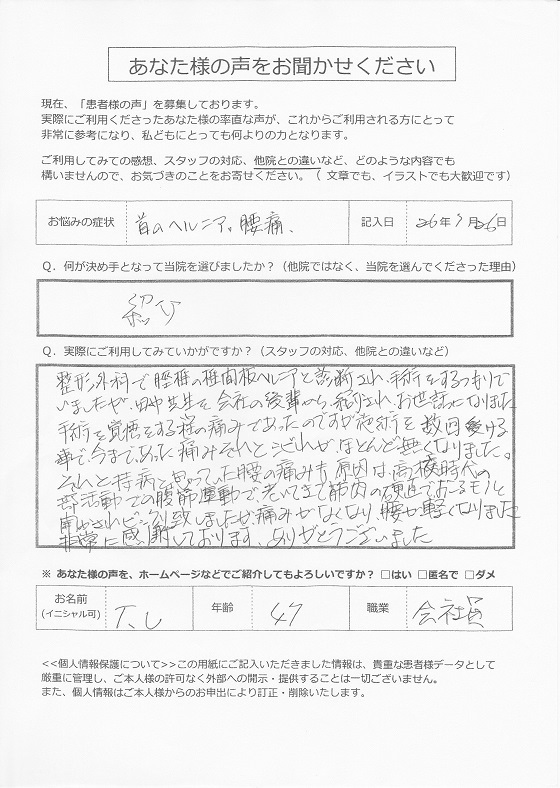 あなた様の声をお聞かせください
現在、「患者様の声」を募集しております。
実際にご利用くださったあなた様の率直な声が、これからご利用される方にとって
非常に参考になり、私どもにとっても何よりの力となります。
ご利用してみての感想、スタッフの対応、他院との違いなど、どのような内容でも
構いませんので、お気づきのことをお寄せください。（ 文章でも、イラストでも大歓迎です）
お悩みの症状 首のヘルニア。腰痛、 記入日 26年 月26日
Q．何が決め手となって当院を選びましたか？（他院ではなく、当院を選んでくださった理由）
紹介
Q．実際にご利用してみていかがですか？（スタッフの対応、他院との違いなど）
整形外科で 椎間板ヘルニアと診断され、手術をするつもりで
いましたが、田中先生を会社の後輩から紹介されお世話になりました
手術を覚悟をする程の痛みであったのですが施術を数回受ける
事で、今まであった痛みそれとシビレがほとんど無くなりました。
それと持病と思っていた腰の痛みも原因は、高校時代の
部活動での腹筋運動で、老いてきて筋肉の硬直でおこるモノと
聞かされビックリ致しましたが、痛みがなくなり、腰が軽くなりました
非常に感謝しております。ありがとうございました
※ あなた様の声を、ホームページなどでご紹介してもよろしいですか？ □はい □匿名で □ダメ
お名前
(イニシャル可) T、U 年齢 47 職業 会社員
<<個人情報保護について>>この用紙にご記入いただきました情報は、貴重な患者様データとして
厳重に管理し、ご本人様の許可なく外部への開示・提供することは一切ございません。
また、個人情報はご本人様からのお申出により訂正・削除いたします。